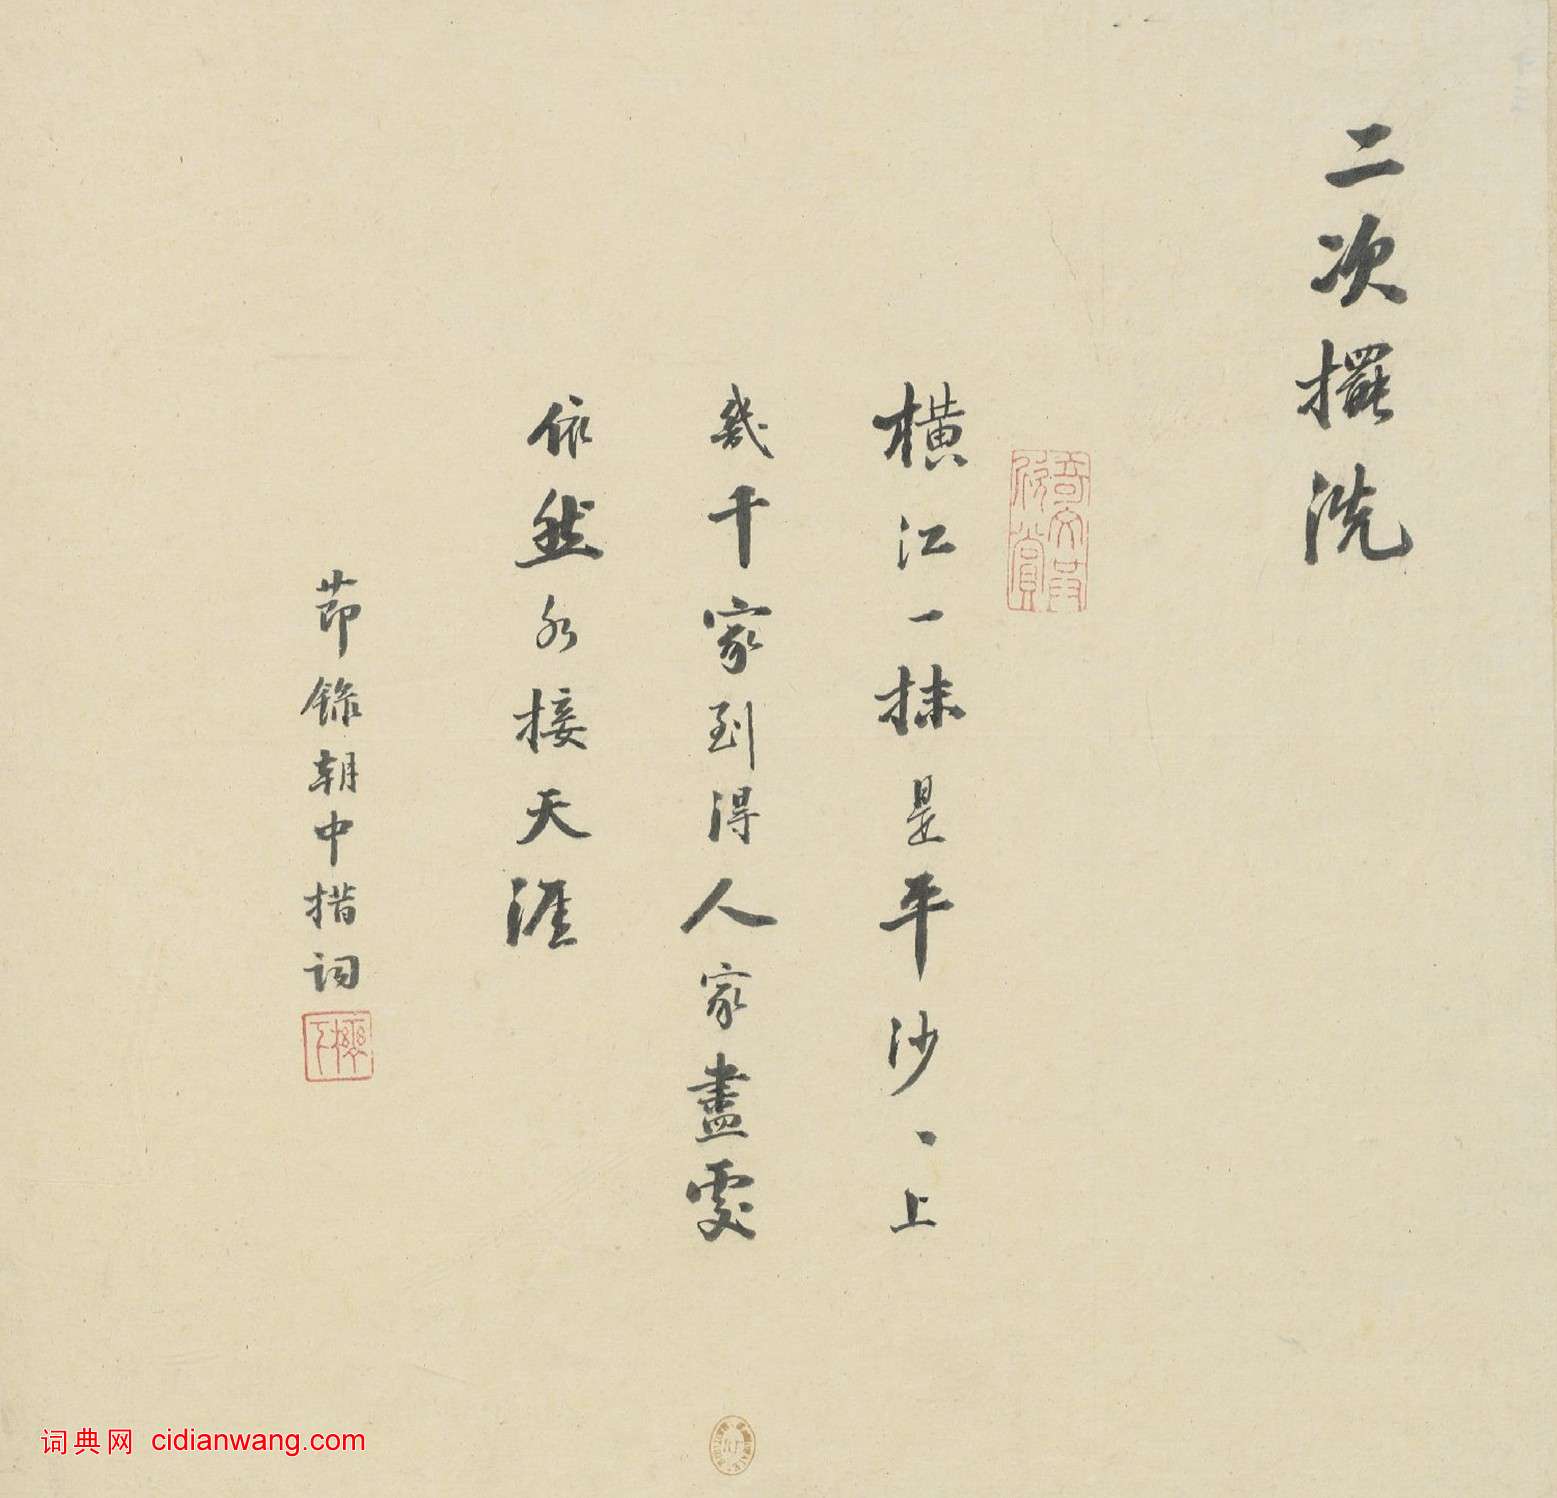 二次擺洗
橫江一抹是平沙、上
幾千家到得人家盡處
依然水接天涯
節錄朝中措詞
词典网 cidianwang.com